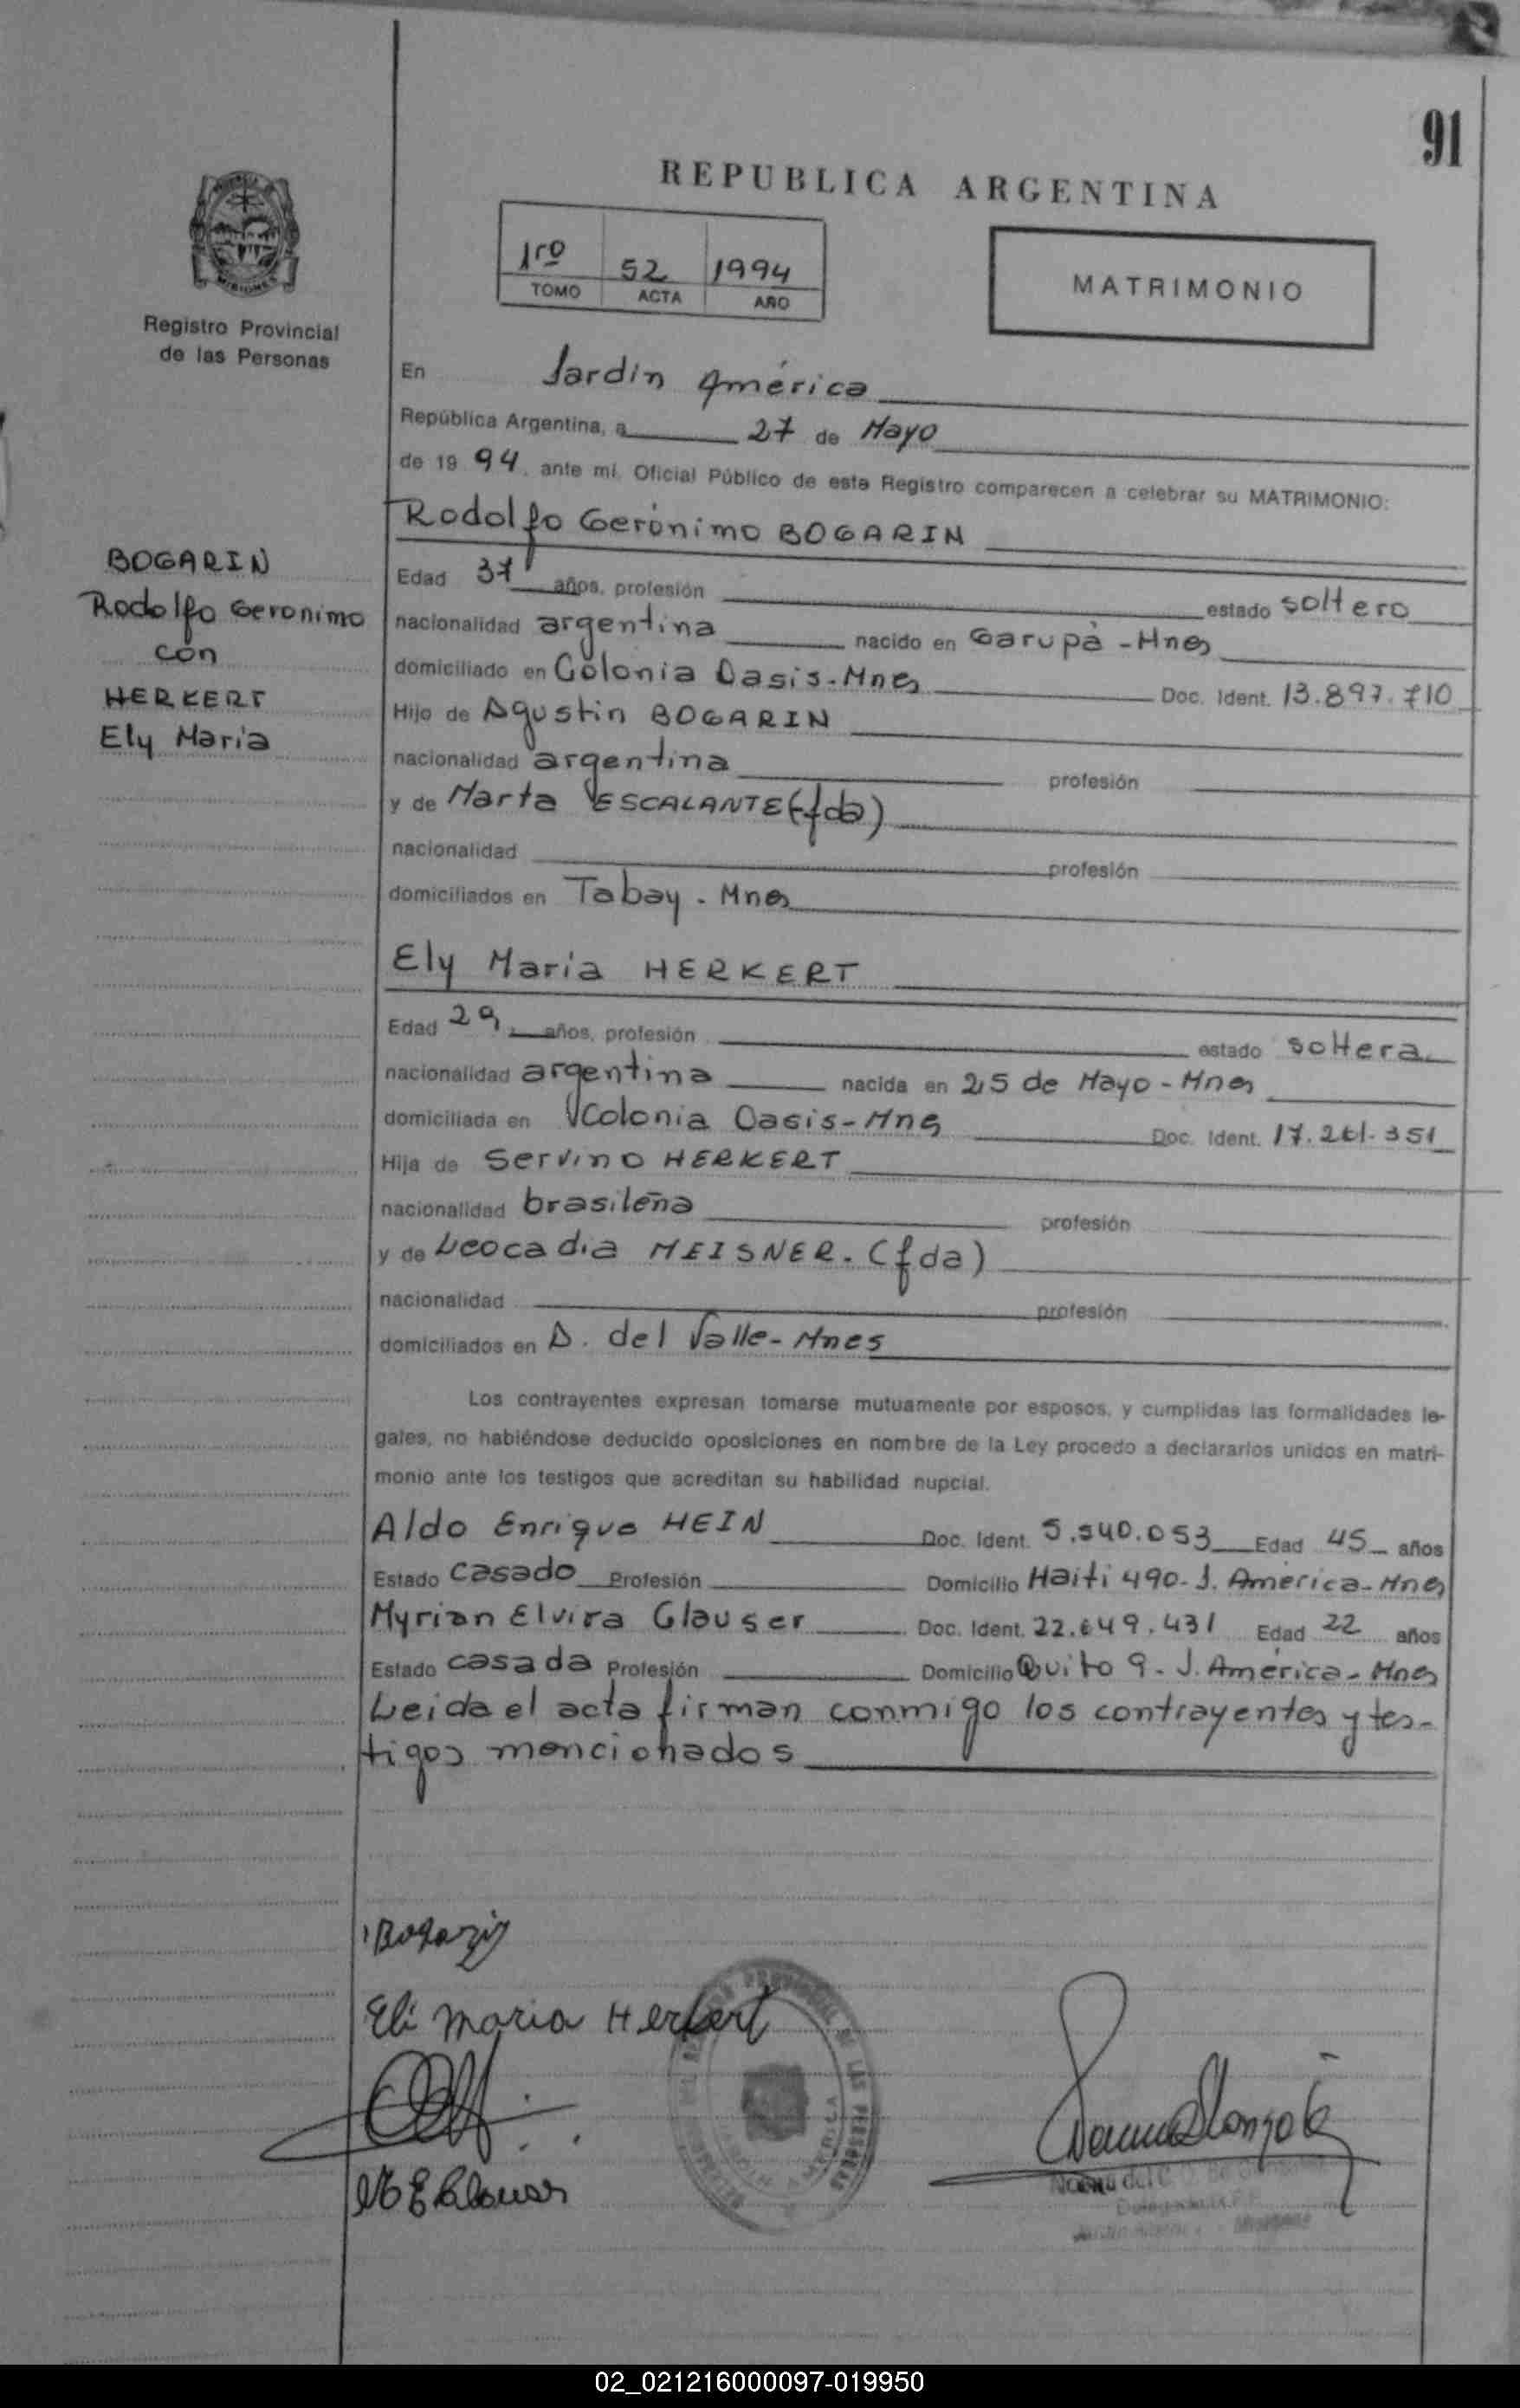 91
REPUBLICA ARGENTINA
MISIONES
Registro Provincial
de las Personas
1ro 52 1994
TOMO ACTA AÑO
MATRIMONIO
En Jardín América
República Argentina, a 27 de Mayo
de 19 94, ante mí, Oficial Público de este Registro comparecen a celebrar su MATRIMONIO:
Rodolfo Gerónimo BOGARIN
BOGARIN
Rodolfo Geronimo
con
HERKERT
Ely María
Edad 37 años, profesión estado soltero
nacionalidad argentina nacido en Garupá - Mnes
domiciliado en Colonia Oasis - Mnes Doc. Ident. 13.897.710
Hijo de Agustin BOGARIN
nacionalidad argentina profesión
y de Marta ESCALANTE (fda)
nacionalidad profesión
domiciliados en Tabay - Mnes
Ely María HERKERT
Edad 29 años, profesión estado soltera
nacionalidad argentina nacida en 25 de Mayo - Mnes
domiciliada en Colonia Oasis - Mnes Doc. Ident. 17.261.351
Hija de Servino HERKERT
nacionalidad brasileña profesión
y de Leocadia MEISNER. (fda)
nacionalidad profesión
domiciliados en A. del Valle - Mnes
Los contrayentes expresan tomarse mutuamente por esposos, y cumplidas las formalidades le-
gales, no habiéndose deducido oposiciones en nombre de la Ley procedo a declararlos unidos en matri-
monio ante los testigos que acreditan su habilidad nupcial.
Aldo Enrique HEIN Doc. Ident. 5.540.053 Edad 45 años
Estado casado Profesión Domicilio Haití 490 - J. América - Mnes
Myrian Elvira Glauser Doc. Ident. 22.649.431 Edad 22 años
Estado casada Profesión Domicilio Quito 9 - J. América - Mnes
Leida el acta firman conmigo los contrayentes y tes-
tigos mencionados
Bogarin
Eli Maria Herkert
02_021216000097-019950